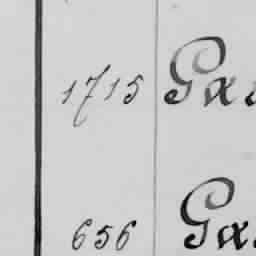 1715 Ga
656 Ga